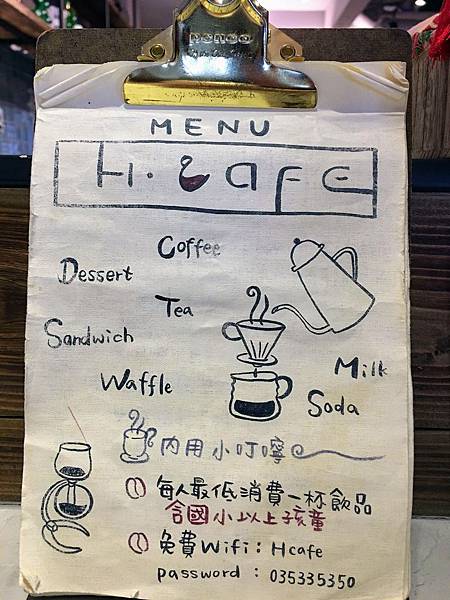 MENU
H. Cafe
Coffee
Dessert
Tea
Sandwich
Milk
Waffle
Soda
內用小叮嚀
每人最低消費一杯飲品
含國小以上孩童
免費Wifi：Hcafe
password：035335350